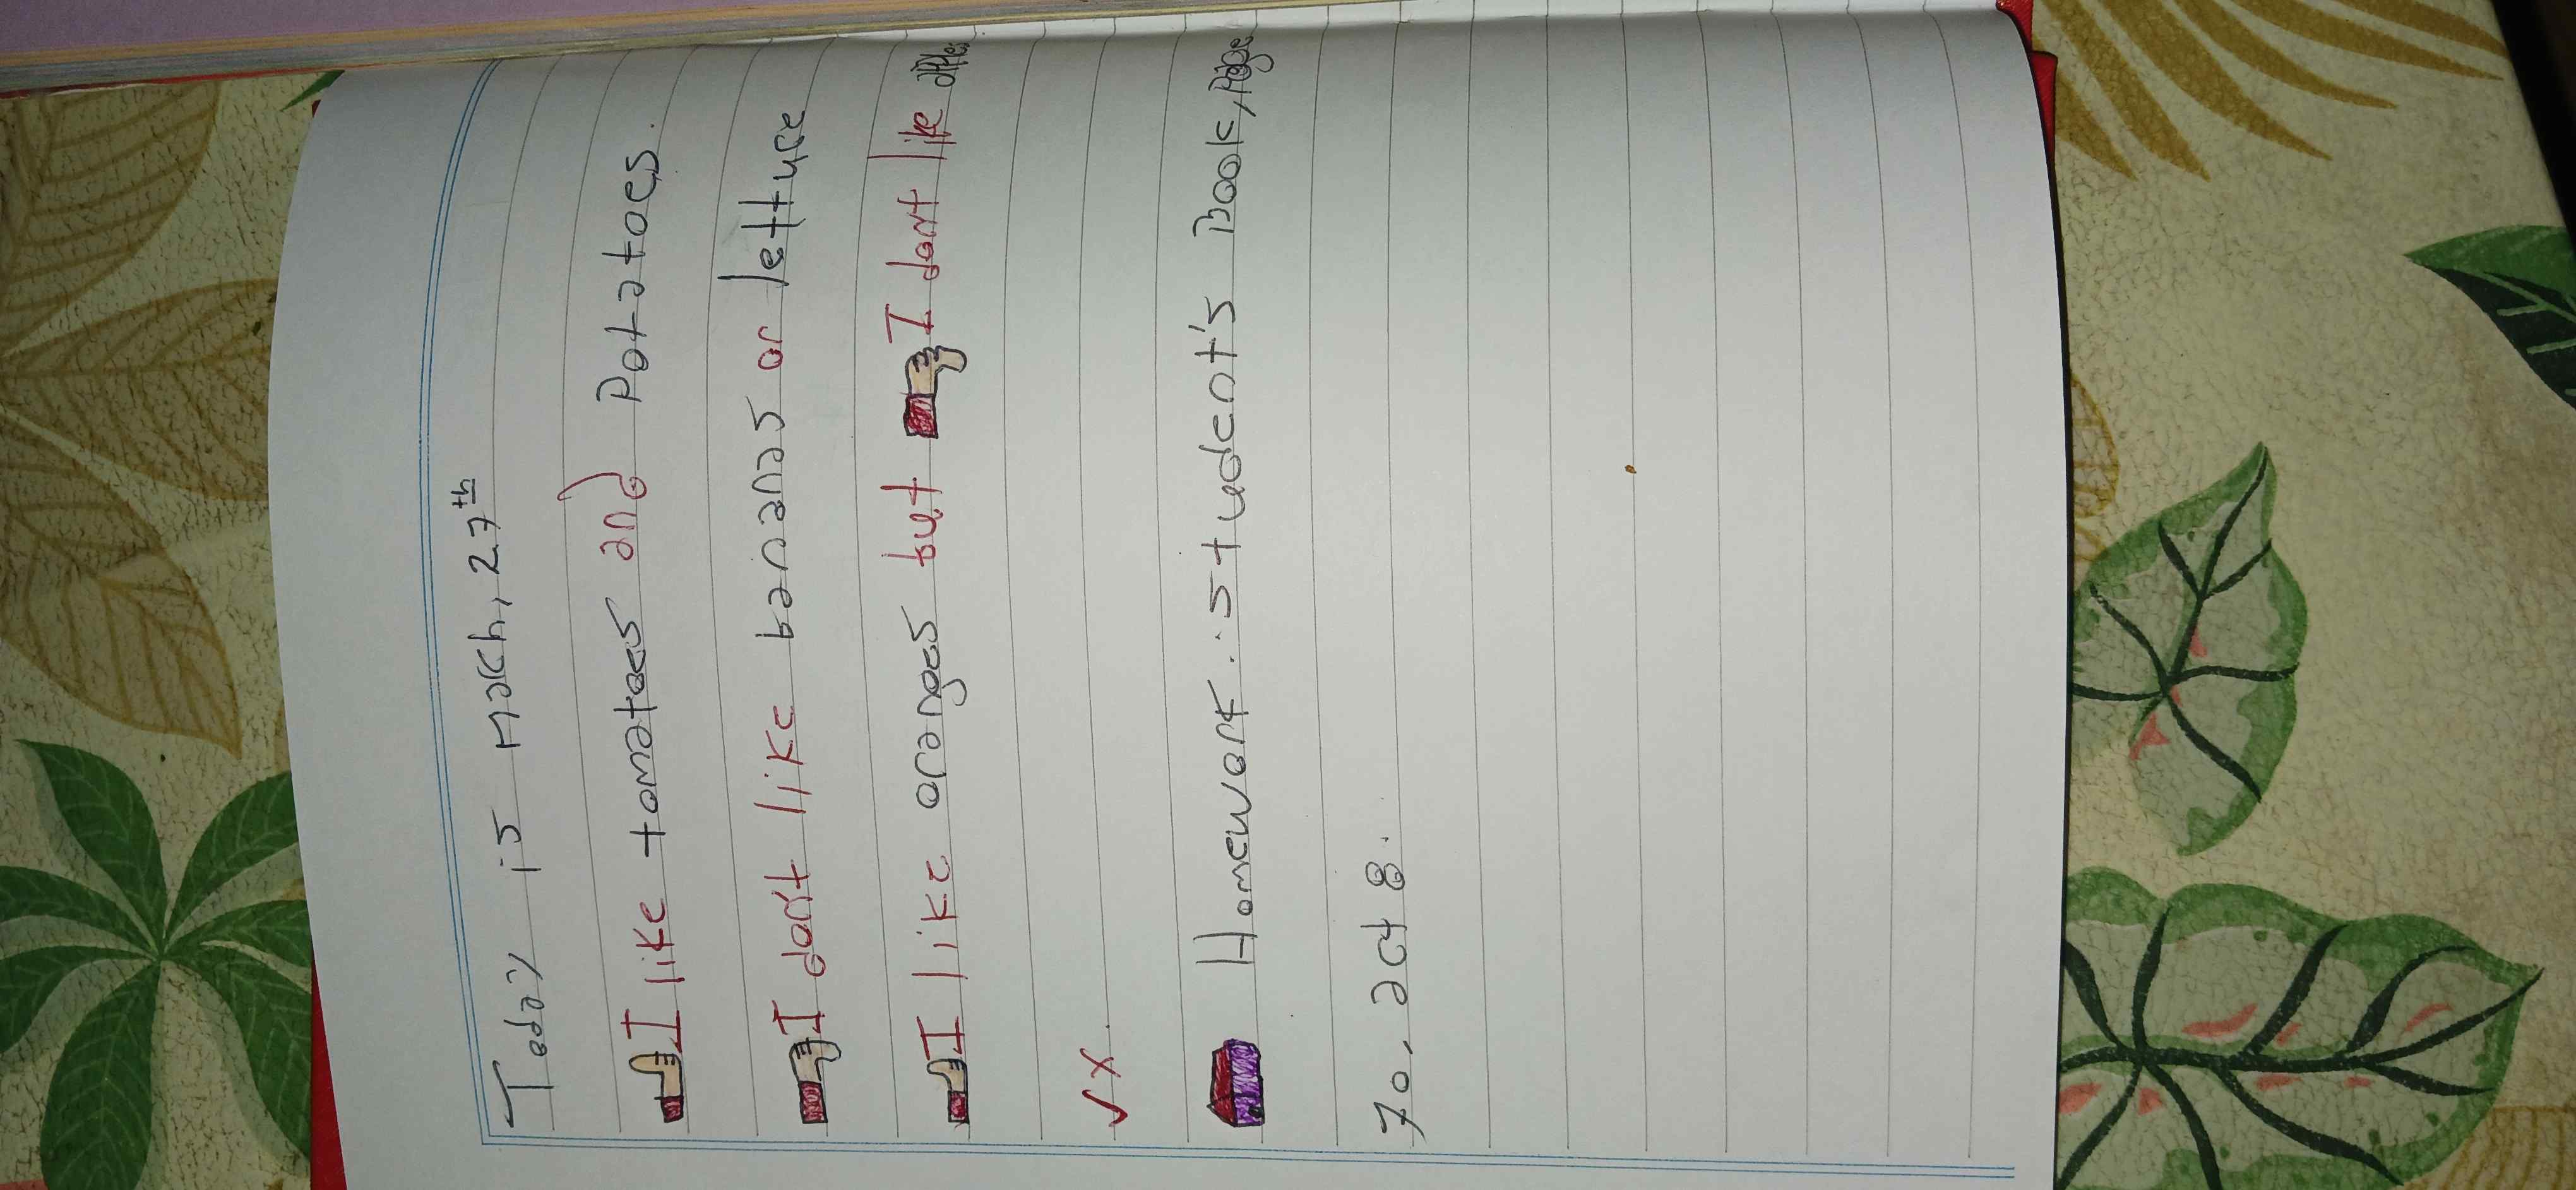 Today is March, 27th
I like tomatoes and Potatoes.
I don't like bananas or lettuce
I like oranges but I don't like apples
√ X
Homework: student's Book, Page
70, act 8.